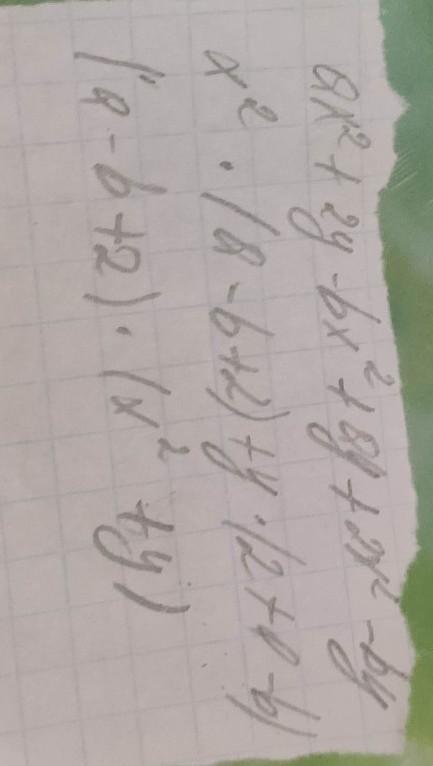 ax² + 2y - bx² + ay + 2x² - by
x² · (a - b + 2) + y · (2 + a - b)
(a - b + 2) · (x² + y)